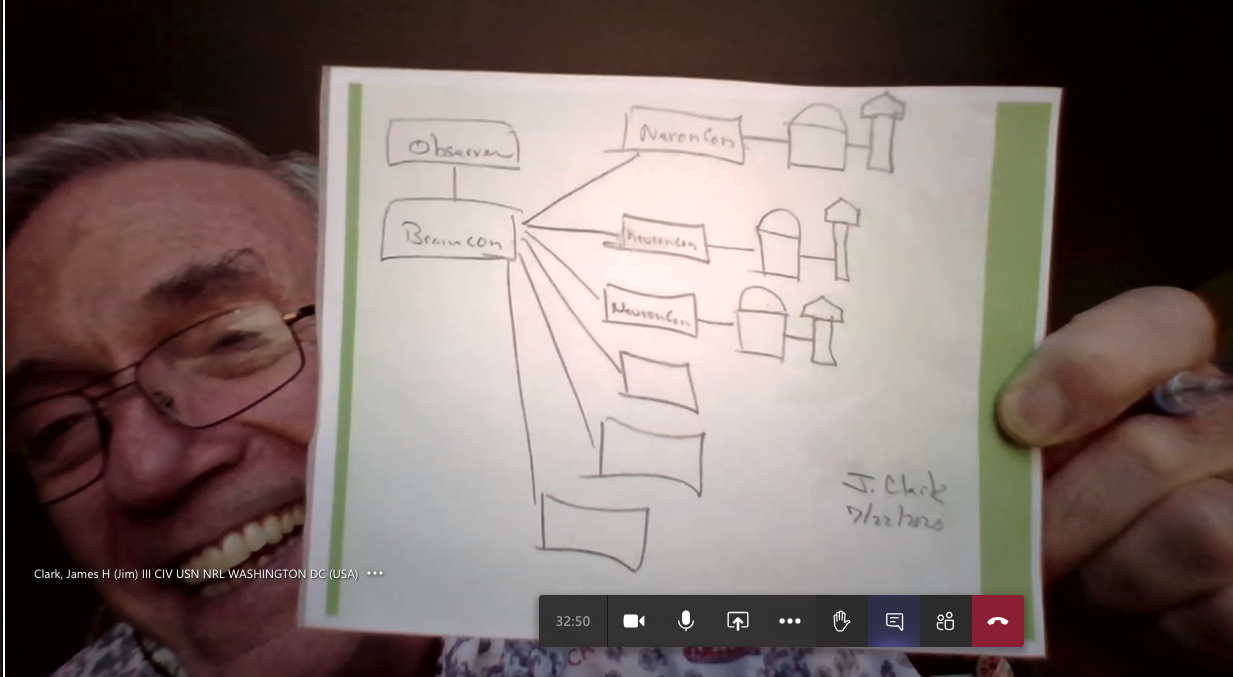 Observer
Braincon
NaronCon
NeuronCon
NeuronCon
J. Clark
7/22/2020
Clark, James H (Jim) III CIV USN NRL WASHINGTON DC (USA)
32:50